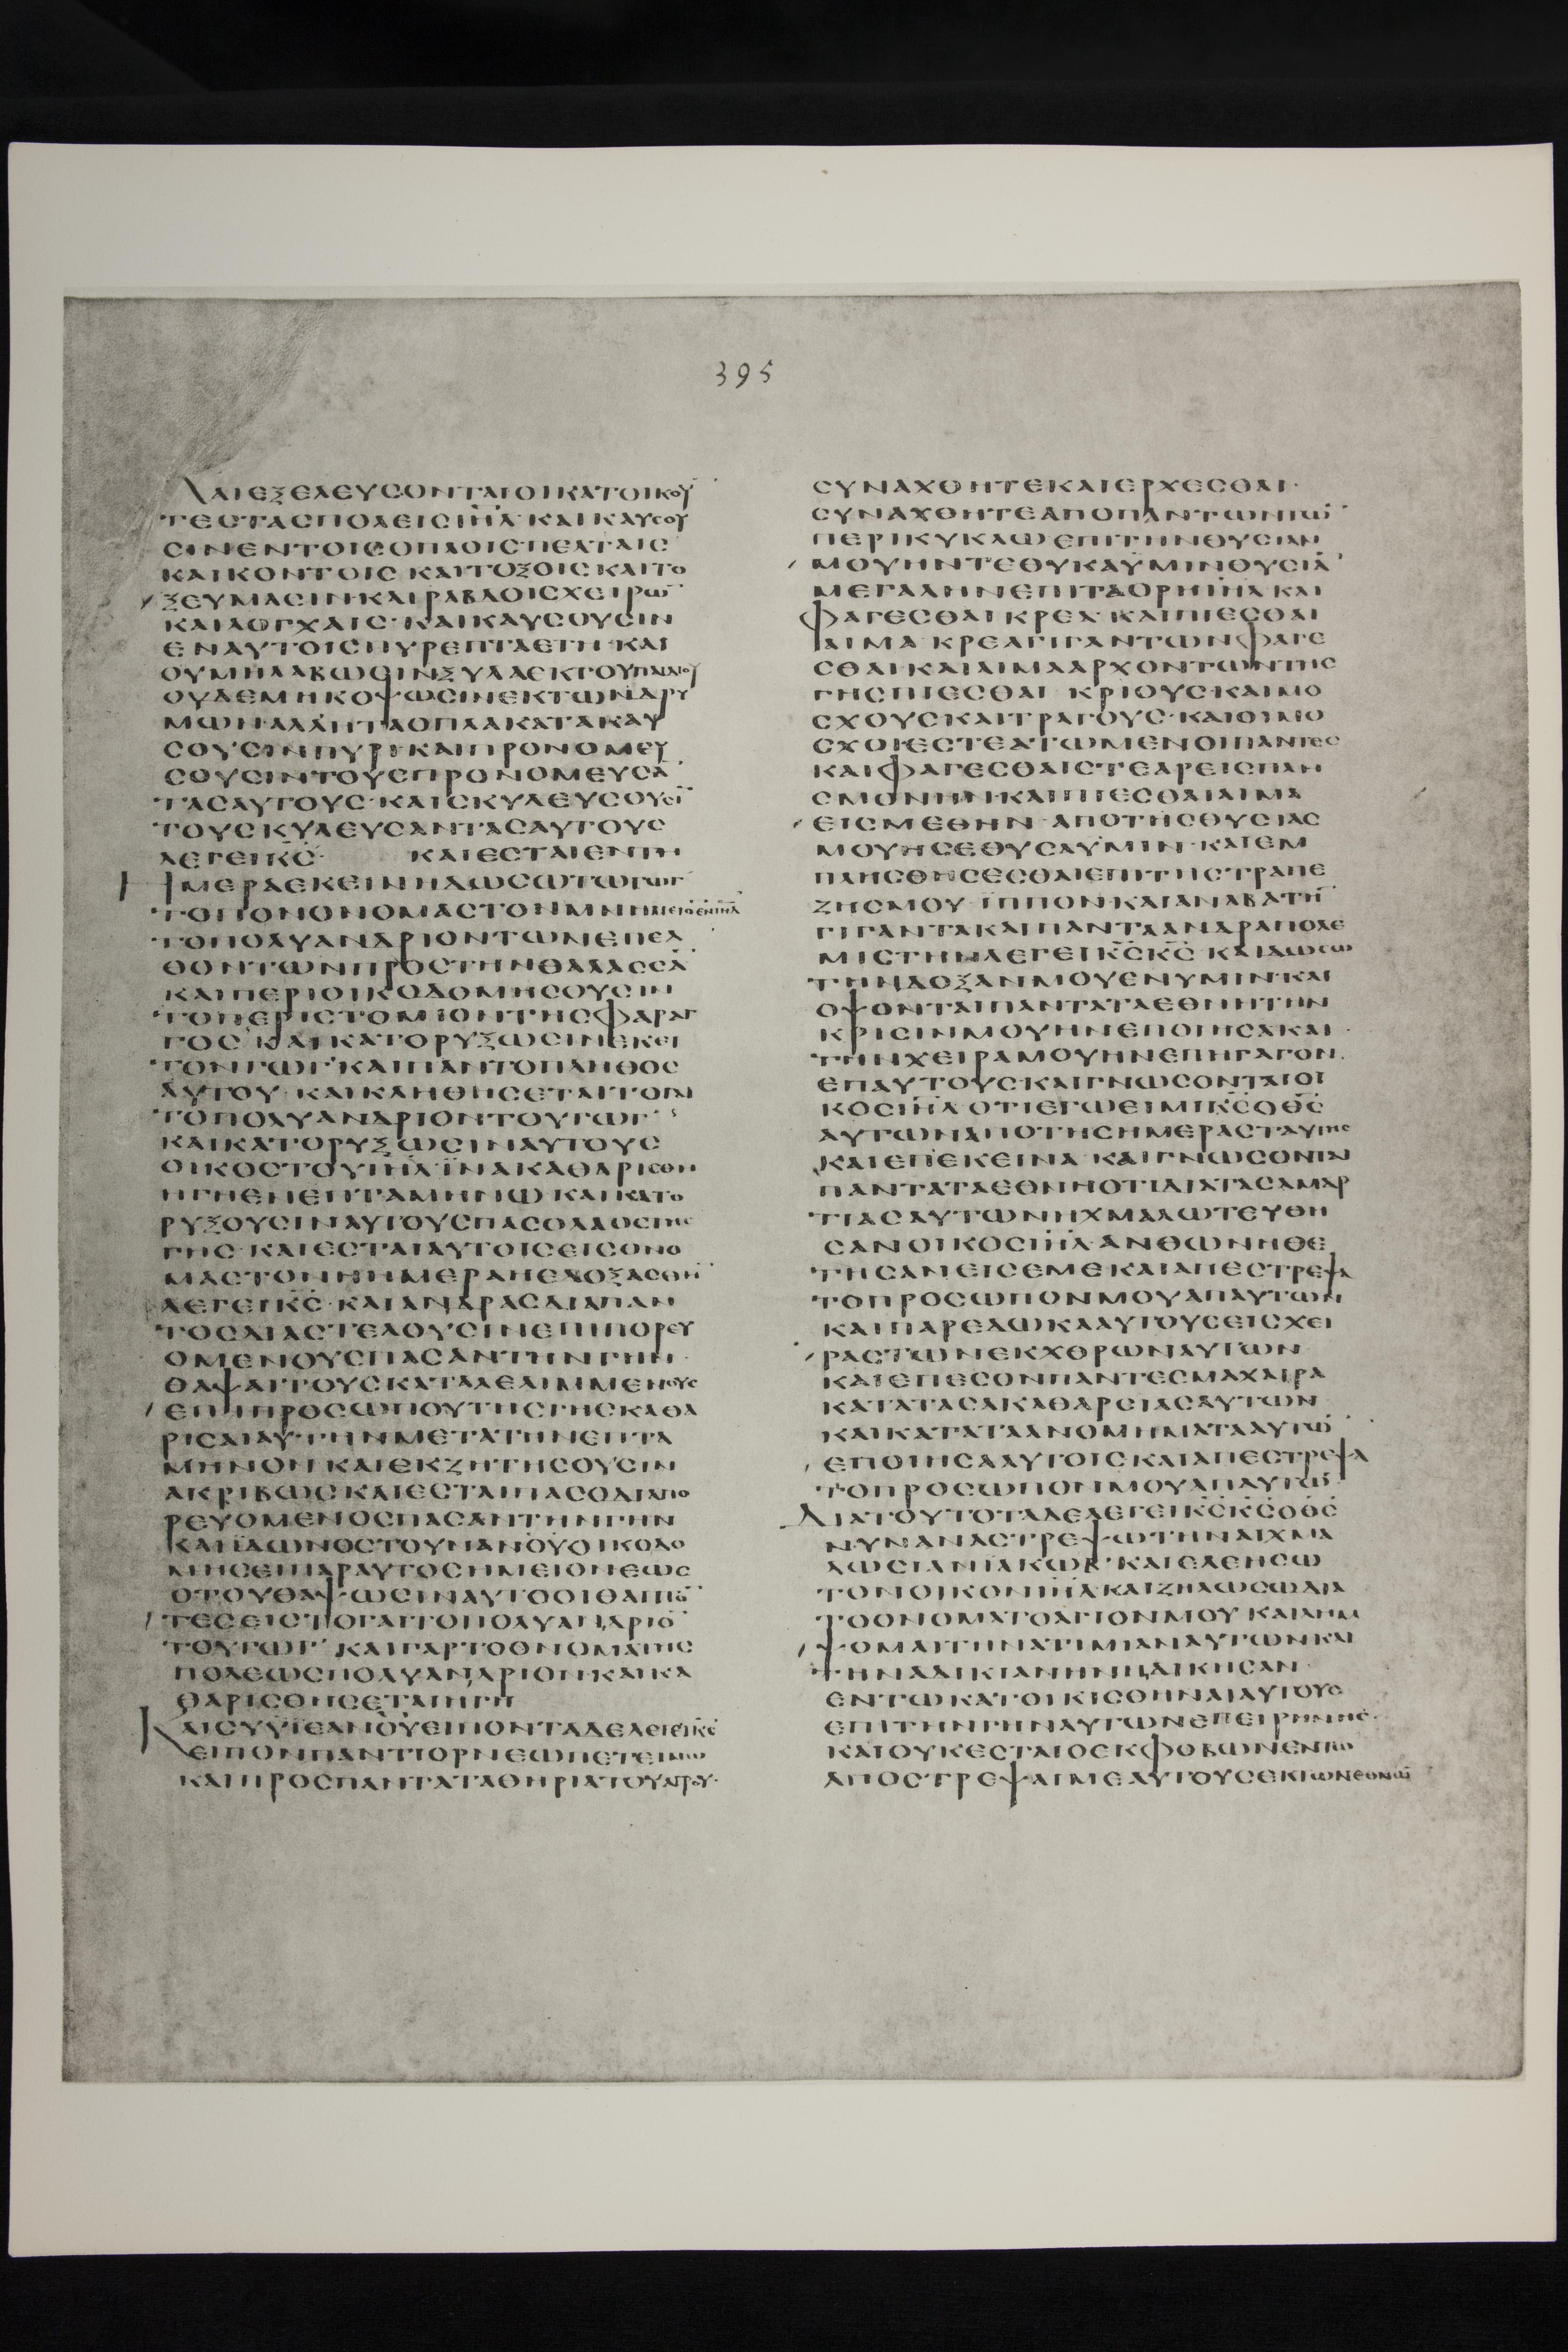 395
ΚΑΙ ΕΞΕΛΕΥCΟΝΤΑΙ ΟΙ ΚΑΤΟΙΚΟΥ
ΤΕC ΤΑC ΠΟΛΕΙC ΙΗΛ ΚΑΙ ΚΑΥCΟΥ
CΙΝ ΕΝ ΤΟΙC ΟΠΛΟΙC ΠΕΛΤΑΙC
ΚΑΙ ΚΟΝΤΟΙC ΚΑΙ ΤΟΞΟΙC ΚΑΙ ΤΟ
ΞΕΥΜΑCΙΝ ΚΑΙ ΡΑΒΔΟΙC ΧΕΙΡΩ̅
ΚΑΙ ΛΟΓΧΑΙC ΚΑΙ ΚΑΥCΟΥCΙΝ
ΕΝ ΑΥΤΟΙC ΠΥΡ ΕΠΤΑ ΕΤΗ ΚΑΙ
ΟΥ ΜΗ ΛΑΒΩCΙΝ ΞΥΛΑ ΕΚ ΤΟΥ ΠΑΙΔΙΟΥ
ΟΥΔΕ ΜΗ ΚΟΨΩCΙΝ ΕΚ ΤΩΝ ΔΡΥ
ΜΩΝ ΑΛΛ Η ΤΑ ΟΠΛΑ ΚΑΤΑΚΑΥ
CΟΥCΙΝ ΠΥΡΙ ΚΑΙ ΠΡΟΝΟΜΕΥ
CΟΥCΙΝ ΤΟΥC ΠΡΟΝΟΜΕΥCΑ̅
ΤΑC ΑΥΤΟΥC ΚΑΙ CΚΥΛΕΥCΟΥCΙ̅
ΤΟΥC CΚΥΛΕΥCΑΝΤΑC ΑΥΤΟΥC
ΛΕΓΕΙ Κ̅C̅ ΚΑΙ ΕCΤΑΙ ΕΝ ΤΗ
ΗΜΕΡΑ ΕΚΕΙΝΗ ΔΩCΩ ΤΩ ΓΩΓ
ΤΟΠΟΝ ΟΝΟΜΑCΤΟΝ ΜΝΗΜΕΙΟΝ ΕΝ ΙΗΛ
ΤΟ ΠΟΛΥΑΝΔΡΙΟΝ ΤΩΝ ΕΠΕΛ
ΘΟΝΤΩΝ ΠΡΟC ΤΗΝ ΘΑΛΑCCΑ̅
ΚΑΙ ΠΕΡΙΟΙΚΟΔΟΜΗCΟΥCΙΝ
ΤΟ ΠΕΡΙCΤΟΜΙΟΝ ΤΗC ΦΑΡΑΓ
ΓΟC ΚΑΙ ΚΑΤΟΡΥΞΩCΙΝ ΕΚΕΙ
ΤΟΝ ΓΩΓ ΚΑΙ ΠΑΝ ΤΟ ΠΛΗΘΟC
ΑΥΤΟΥ ΚΑΙ ΚΛΗΘΗCΕΤΑΙ ΤΟ ΓΑΙ
ΤΟ ΠΟΛΥΑΝΔΡΙΟΝ ΤΟΥ ΓΩΓ
ΚΑΙ ΚΑΤΟΡΥΞΩCΙΝ ΑΥΤΟΥC
ΟΙΚΟC ΤΟΥ ΙΗΛ ΪΝΑ ΚΑΘΑΡΙCΘΗ
Η ΓΗ ΕΝ ΕΠΤΑΜΗΝΩ ΚΑΙ ΚΑΤΟ
ΡΥΞΟΥCΙΝ ΑΥΤΟΥC ΠΑC Ο ΛΑΟC ΤΗC
ΓΗC ΚΑΙ ΕCΤΑΙ ΑΥΤΟΙC ΕΙC ΟΝΟ
ΜΑCΤΟΝ Η ΗΜΕΡΑ ΕΔΟΞΑCΘΗ
ΛΕΓΕΙ Κ̅C̅ ΚΑΙ ΑΝΔΡΑC ΔΙΑ ΠΑΝ
ΤΟC ΔΙΑCΤΕΛΟΥCΙΝ ΕΠΙΠΟΡΕΥ
ΟΜΕΝΟΥC ΠΑCΑΝ ΤΗΝ ΓΗΝ
ΘΑΨΑΙ ΤΟΥC ΚΑΤΑΛΕΛΙΜΜΕΝΟΥC
ΕΠΙ ΠΡΟCΩΠΟΥ ΤΗC ΓΗC ΚΑΘΑ
ΡΙCΑΙ ΑΥΤΗΝ ΜΕΤΑ ΤΗΝ ΕΠΤΑ
ΜΗΝΟΝ ΚΑΙ ΕΚΖΗΤΗCΟΥCΙΝ
ΑΚΡΙΒΩC ΚΑΙ ΕCΤΑΙ ΠΑC Ο ΔΙΑΠΟ
ΡΕΥΟΜΕΝΟC ΠΑCΑΝ ΤΗΝ ΓΗΝ
ΚΑΙ ΪΔΩΝ ΟCΤΟΥΝ ΑΝΟΥ ΟΙΚΟΔΟ
ΜΗCΕΙ ΠΑΡ ΑΥΤΟ CΗΜΕΙΟΝ ΕΩC
ΟΤΟΥ ΘΑΨΩCΙΝ ΑΥΤΟ ΟΙ ΘΑΠΤΟ̅
ΤΕC ΕΙC ΤΟ ΓΑΙ ΤΟ ΠΟΛΥΑΝΔΡΙΟ̅
ΤΟΥ ΓΩΓ ΚΑΙ ΓΑΡ ΤΟ ΟΝΟΜΑ ΤΗC
ΠΟΛΕΩC ΠΟΛΥΑΝΔΡΙΟΝ ΚΑΙ ΚΑ
ΘΑΡΙCΘΗCΕΤΑΙ Η ΓΗ
ΚΑΙ CΥ ΥΪΕ ΑΝΟΥ ΕΙΠΟΝ ΤΑΔΕ ΛΕΓΕΙ Κ̅C̅
ΕΙΠΟΝ ΠΑΝΤΙ ΟΡΝΕΩ ΠΕΤΕΙΝΩ
ΚΑΙ ΠΡΟC ΠΑΝΤΑ ΤΑ ΘΗΡΙΑ ΤΟΥ ΑΓΡΟΥ
CΥΝΑΧΘΗΤΕ ΚΑΙ ΕΡΧΕCΘΑΙ
CΥΝΑΧΘΗΤΕ ΑΠΟ ΠΑΝΤΩΝ ΤΩ̅
ΠΕΡΙΚΥΚΛΩ ΕΠΙ ΤΗΝ ΘΥCΙΑΝ
ΜΟΥ ΗΝ ΤΕΘΥΚΑ ΥΜΙΝ ΘΥCΙΑ̅
ΜΕΓΑΛΗΝ ΕΠΙ ΤΑ ΟΡΗ ΙΗΛ ΚΑΙ
ΦΑΓΕCΘΑΙ ΚΡΕΑ ΚΑΙ ΠΙΕCΘΑΙ
ΑΙΜΑ ΚΡΕΑ ΓΙΓΑΝΤΩΝ ΦΑΓΕ
CΘΑΙ ΚΑΙ ΑΙΜΑ ΑΡΧΟΝΤΩΝ ΤΗC
ΓΗC ΠΙΕCΘΑΙ ΚΡΙΟΥC ΚΑΙ ΜΟ
CΧΟΥC ΚΑΙ ΤΡΑΓΟΥC ΚΑΙ ΟΙ ΜΟ
CΧΟΙ ΕCΤΕΑΤΩΜΕΝΟΙ ΠΑΝΤΕC
ΚΑΙ ΦΑΓΕCΘΑΙ CΤΕΑΡ ΕΙC ΠΛΗ
CΜΟΝΗΝ ΚΑΙ ΠΙΕCΘΑΙ ΑΙΜΑ
ΕΙC ΜΕΘΗΝ ΑΠΟ ΤΗC ΘΥCΙΑC
ΜΟΥ ΗC ΕΘΥCΑ ΥΜΙΝ ΚΑΙ ΕΜ
ΠΛΗCΘΗCΕCΘΑΙ ΕΠΙ ΤΗC ΤΡΑΠΕ
ΖΗC ΜΟΥ ΪΠΠΟΝ ΚΑΙ ΑΝΑΒΑΤΗ̅
ΓΙΓΑΝΤΑ ΚΑΙ ΠΑΝΤΑ ΑΝΔΡΑ ΠΟΛΕ
ΜΙCΤΗΝ ΛΕΓΕΙ Κ̅C̅ Κ̅C̅ ΚΑΙ ΔΩCΩ
ΤΗΝ ΔΟΞΑΝ ΜΟΥ ΕΝ ΥΜΙΝ ΚΑΙ
ΟΨΟΝΤΑΙ ΠΑΝΤΑ ΤΑ ΕΘΝΗ ΤΗΝ
ΚΡΙCΙΝ ΜΟΥ ΗΝ ΕΠΟΙΗCΑ ΚΑΙ
ΤΗΝ ΧΕΙΡΑ ΜΟΥ ΗΝ ΕΠΗΓΑΓΟΝ
ΕΠ ΑΥΤΟΥC ΚΑΙ ΓΝΩCΟΝΤΑΙ ΟΙ
ΚΟC ΙΗΛ ΟΤΙ ΕΓΩ ΕΙΜΙ Κ̅C̅ Ο Θ̅C̅
ΑΥΤΩΝ ΑΠΟ ΤΗC ΗΜΕΡΑC ΤΑΥΤΗC
ΚΑΙ ΕΠΕΚΕΙΝΑ ΚΑΙ ΓΝΩCΟΝΤΑΙ
ΠΑΝΤΑ ΤΑ ΕΘΝΗ ΟΤΙ ΔΙΑ ΤΑC ΑΜΑΡ
ΤΙΑC ΑΥΤΩΝ ΗΧΜΑΛΩΤΕΥΘΗ
CΑΝ ΟΙΚΟC ΙΗΛ ΑΝΘ ΩΝ ΗΘΕ
ΤΗCΑΝ ΕΙC ΕΜΕ ΚΑΙ ΑΠΕCΤΡΕΨΑ
ΤΟ ΠΡΟCΩΠΟΝ ΜΟΥ ΑΠ ΑΥΤΩΝ
ΚΑΙ ΠΑΡΕΔΩΚΑ ΑΥΤΟΥC ΕΙC ΧΕΙ
ΡΑC ΤΩΝ ΕΚΧΘΡΩΝ ΑΥΤΩΝ
ΚΑΙ ΕΠΕCΟΝ ΠΑΝΤΕC ΜΑΧΑΙΡΑ
ΚΑΤΑ ΤΑC ΑΚΑΘΑΡCΙΑC ΑΥΤΩΝ
ΚΑΙ ΚΑΤΑ ΤΑ ΑΝΟΜΗΜΑΤΑ ΑΥΤΩ̅
ΕΠΟΙΗCΑ ΑΥΤΟΙC ΚΑΙ ΑΠΕCΤΡΕΨΑ
ΤΟ ΠΡΟCΩΠΟΝ ΜΟΥ ΑΠ ΑΥΤΩ̅
ΔΙΑ ΤΟΥΤΟ ΤΑΔΕ ΛΕΓΕΙ Κ̅C̅ Κ̅C̅ Ο Θ̅C̅
ΝΥΝ ΑΝΑCΤΡΕΨΩ ΤΗΝ ΑΙΧΜΑ
ΛΩCΙΑΝ ΙΑΚΩΒ ΚΑΙ ΕΛΕΗCΩ
ΤΟΝ ΟΙΚΟΝ ΙΗΛ ΚΑΙ ΖΗΛΩCΩ ΔΙΑ
ΤΟ ΟΝΟΜΑ ΤΟ ΑΓΙΟΝ ΜΟΥ ΚΑΙ ΛΗΜ
ΨΟΜΑΙ ΤΗΝ ΑΤΙΜΙΑΝ ΑΥΤΩΝ ΚΑΙ
ΤΗΝ ΑΔΙΚΙΑΝ ΗΝ ΗΔΙΚΗCΑΝ
ΕΝ ΤΩ ΚΑΤΟΙΚΙCΘΗΝΑΙ ΑΥΤΟΥC
ΕΠΙ ΤΗΝ ΓΗΝ ΑΥΤΩΝ ΕΠ ΕΙΡΗΝΗC
ΚΑΙ ΟΥΚ ΕCΤΑΙ Ο ΕΚΦΟΒΩΝ ΕΝ ΤΩ
ΑΠΟCΤΡΕΨΑΙ ΜΕ ΑΥΤΟΥC ΕΚ ΤΩΝ ΕΘΝΩ̅